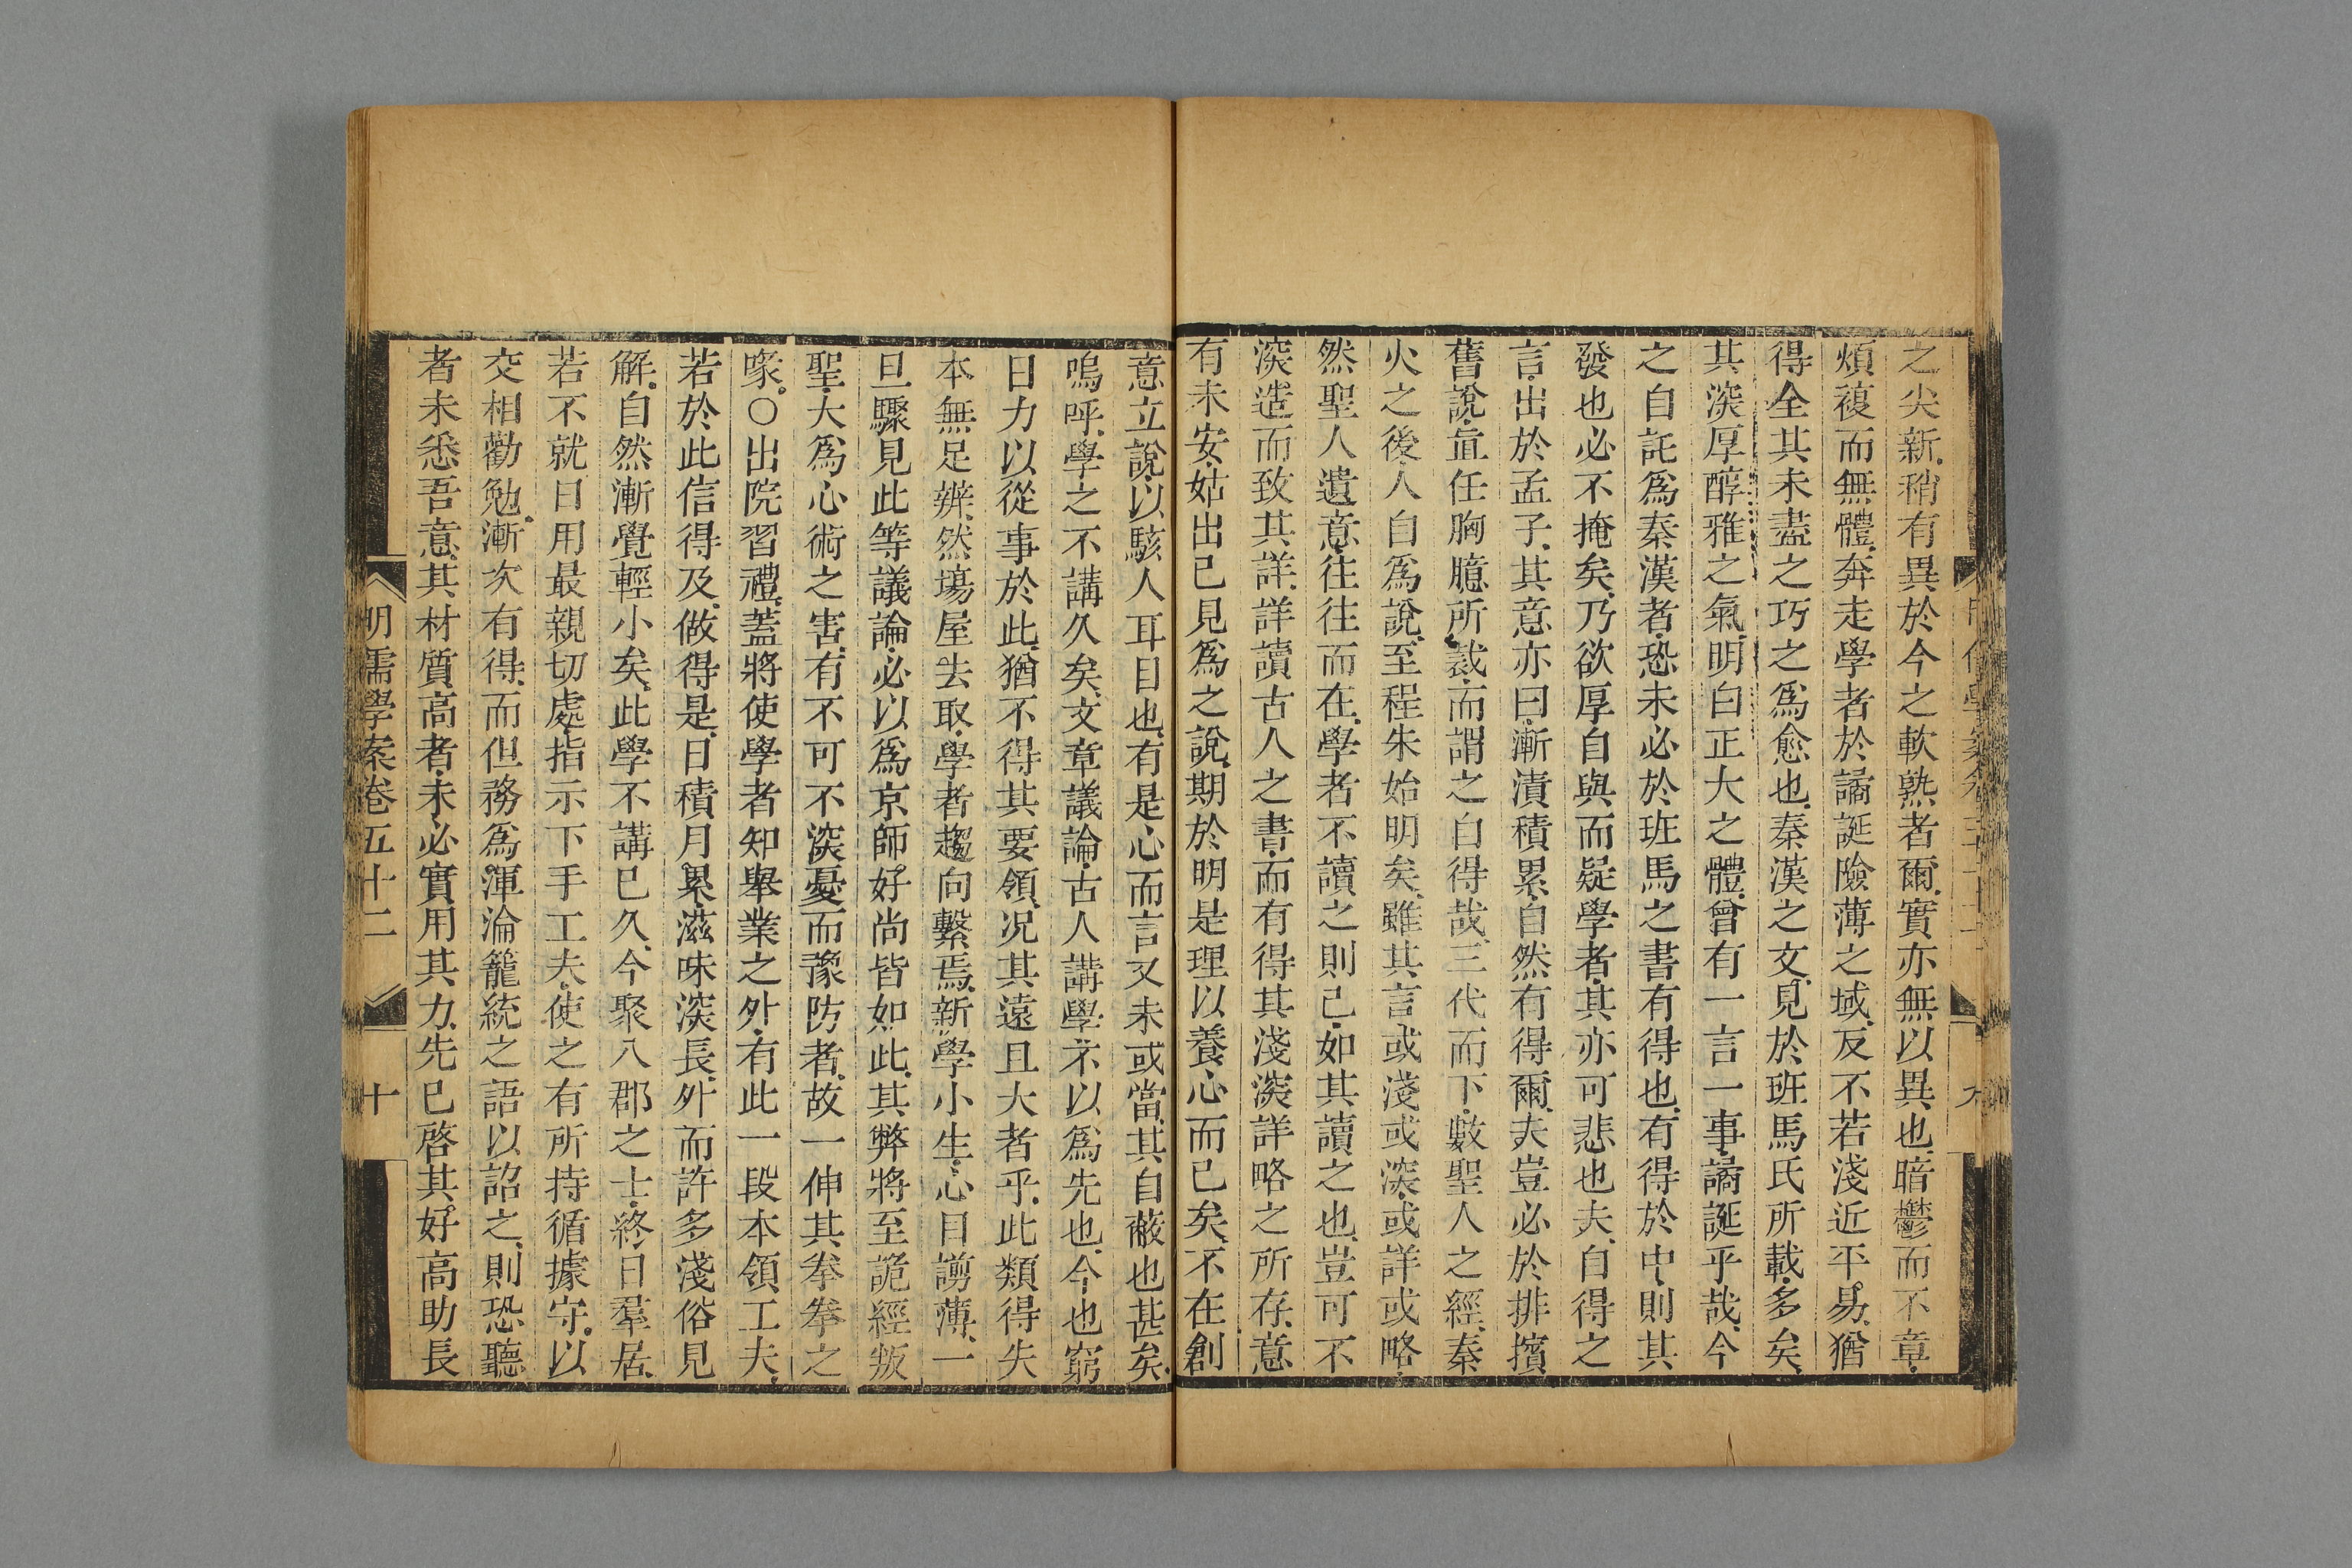 之尖新稍有異於今之軟熟者爾實亦無以異也暗鬱而不章
煩複而無體奔走學者於譎誕險薄之域反不若淺近平易猶
得全其未盡之巧之爲愈也秦漢之文見於班馬氏所載多矣
其深厚醇雅之氣明白正大之體曾有一言一事譎誕乎哉今
之自託爲秦漢者恐未必於班馬之書有得也有得於中則其
發也必不掩矣乃欲厚自與而疑學者其亦可悲也夫自得之
言出於孟子其意亦曰漸漬積累自然有得爾夫豈必於排擯
舊說直任胸臆所裁而謂之自得哉三代而下數聖人之經秦
火之後人自爲說至程朱始明矣雖其言或淺或深或詳或略
然聖人遺意往往而在學者不讀之則已如其讀之也豈可不
深造而致其詳詳讀古人之書而有得其淺深詳略之所存意
有未安姑出己見爲之說期於明是理以養心而已矣不在創
意立說以駭人耳目也有是心而言又未或當其自蔽也甚矣
嗚呼學之不講久矣文章議論古人講學不以爲先也今也窮
日力以從事於此猶不得其要領况其遠且大者乎此類得失
本無足辨然塲屋去取學者趨向繫焉新學小生心目謭薄一
旦驟見此等議論必以爲京師好尚皆如此其弊將至詭經叛
聖大爲心術之害有不可不深憂而豫防者故一伸其拳拳之
喙○出院習禮蓋將使學者知舉業之外有此一段本領工夫
若於此信得及做得是日積月累滋味深長外而許多淺俗見
解自然漸覺輕小矣此學不講已久今聚八郡之士終日羣居
若不就日用最親切處指示下手工夫使之有所持循據守以
交相勸勉漸次有得而但務爲渾淪籠統之語以詔之則恐聽
者未悉吾意其材質高者未必實用其力先已啓其好高助長
明儒學案卷五十二
十